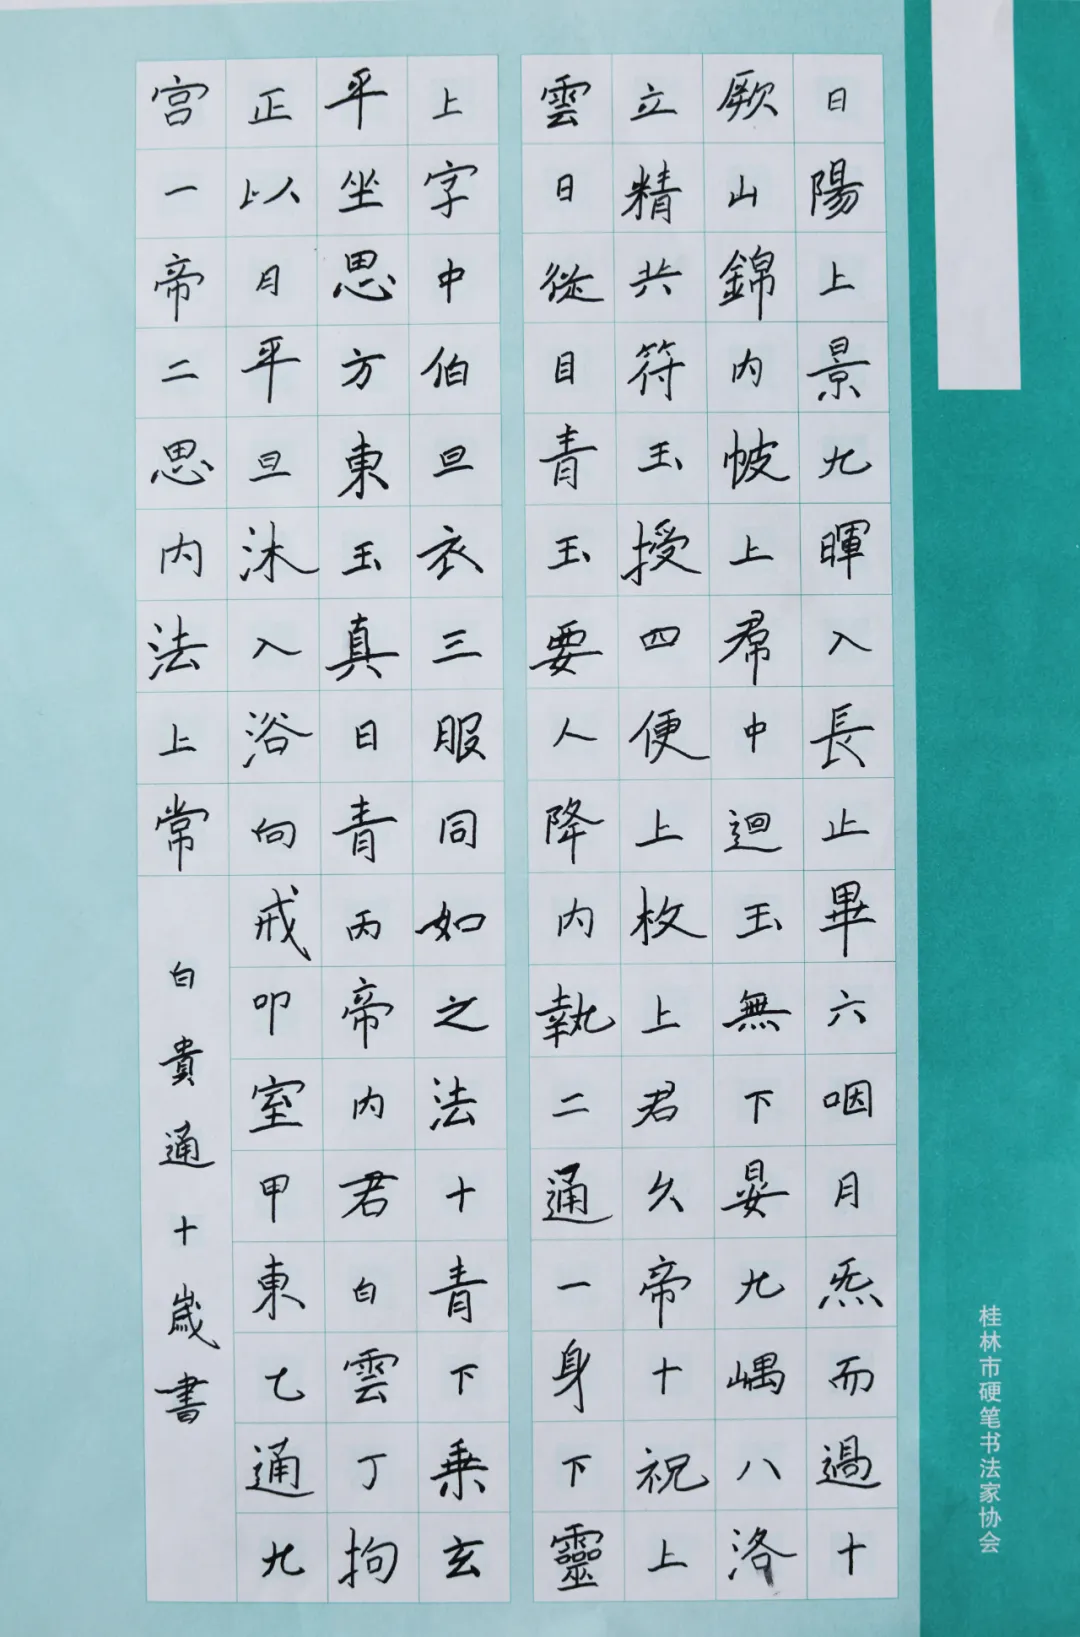 日陽上景九暉入長止畢六咽月炁而過十
厥山錦内帔上帬中迴玉無下晏九嵎八洛
立精共符玉授四便上枚上君久帝十祝上
雲日從目青玉要人降内執二通一身下靈
上字中伯旦衣三服同如之法十青下乗玄
平坐思方東玉真日青丙帝内君白雲丁拘
正以月平旦沐入浴向戒叩室甲東七通九
宫一帝二思内法上常
白貴通十歲書
桂林市硬笔书法家协会